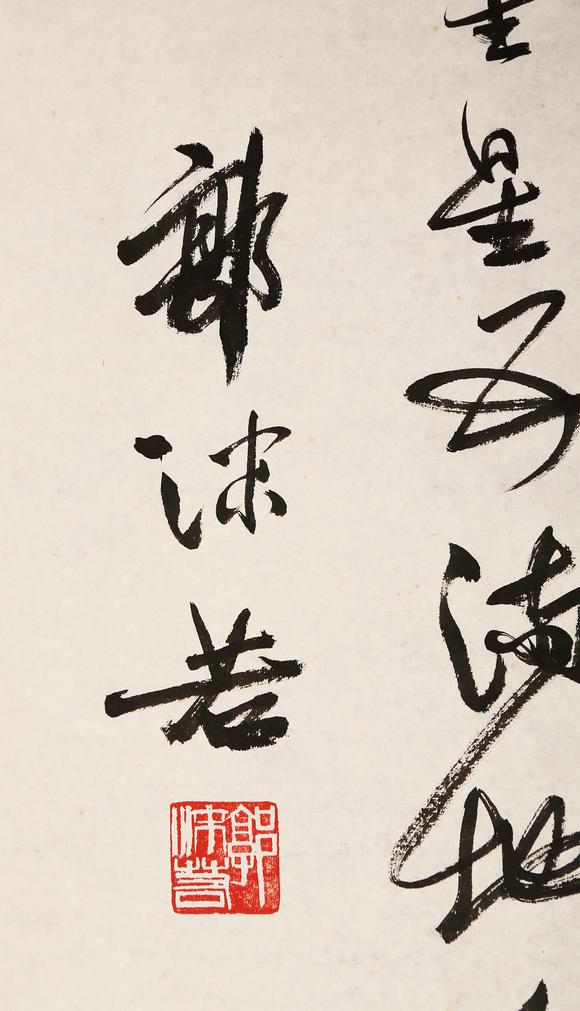 星满地
郭沫若
郭沫若